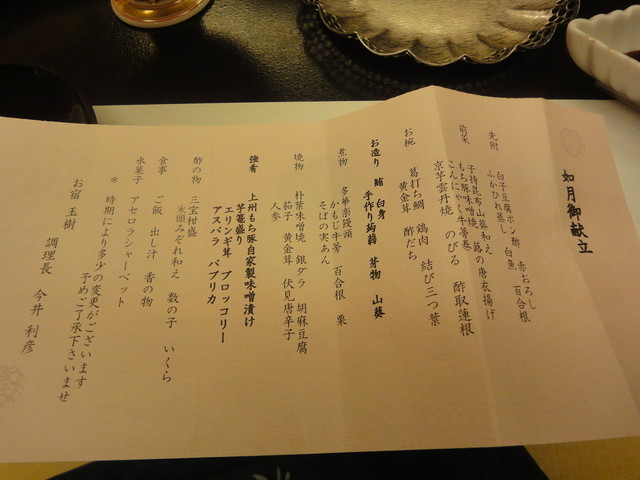 如月御献立
先附 白子豆腐ポン酢 赤おろし
ふかひれ蒸し 白魚 百合根
前菜 子持昆布山葵和え 蕗の唐衣揚げ
もち豚味噌焼
こんにゃく牛蒡巻 酢取蓮根
京芋雲丹焼 のびる
お椀 葛打ち鯛 鶏肉 結び三つ葉
黄金茸 酢だち
お造り 鮪 白身
手作り蒟蒻 芽物 山葵
煮物 多華楽饅頭
かもじ牛蒡 百合根 栗
そばの実あん
焼物 朴葉味噌焼 銀ダラ 胡麻豆腐
茄子 黄金茸 伏見唐辛子
人参
強肴 上州もち豚自家製味噌漬け
芋篭盛り
エリンギ茸 ブロッコリー
アスパラ パプリカ
酢の物 三宝柑盛
氷頭みぞれ和え 数の子 いくら
食事 ご飯 出し汁 香の物
水菓子 アセロラシャーベット
* 時期により多少の変更がございます
予めご了承下さいませ
お宿 玉樹
調理長 今井 利彦